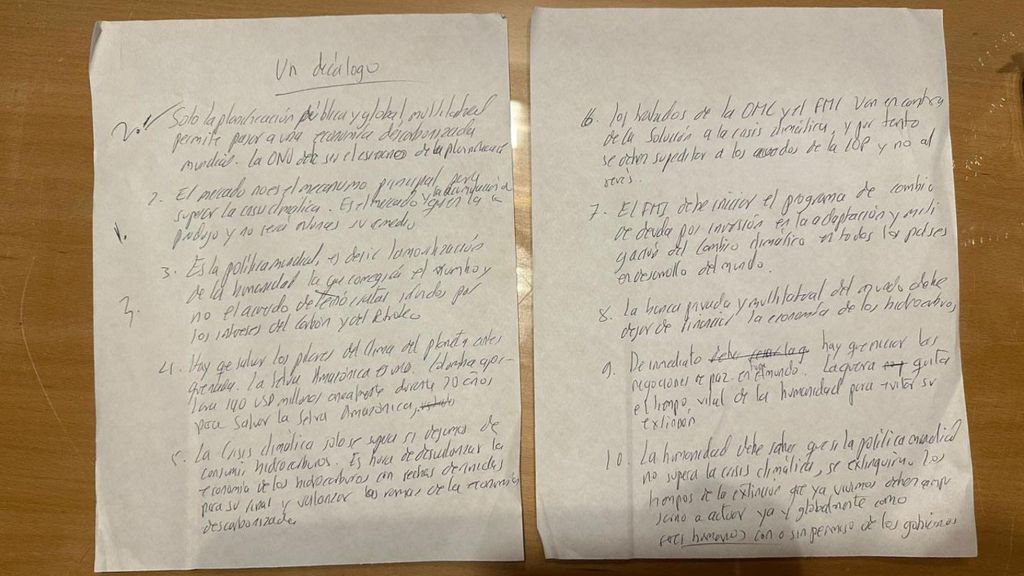 Un decálogo
Solo la planificación pública y global multilateral
permite pasar a una economía descarbonizada
mundial. La ONU debe ser el escenario de la planificación
2. El mercado no es el mecanismo principal para
superar la crisis climática. Es el mercado y la acumulación
quien la
produjo y no será su remedio
1.
3. Es la política mundial, es decir la movilización
de la humanidad la que corregirá el rumbo y
no el acuerdo de tecnócratas influidos por
los intereses del carbón y el petróleo
3.
4. Hay que salvar los pilares del clima del planeta
La Selva Amazónica es uno. Colombia apor-
tará 140 USD millones anualmente durante 20 años
para salvar la selva Amazónica,
5. La Crisis climática solo se supera si dejamos de
consumir hidrocarburos. Es hora de desvalorizar la
economía de los hidrocarburos con fechas definidas
para su final y valorizar las ramas de la economía
descarbonizada
6. los tratados de la OMC y el FMI van en contra
de la solución a la crisis climática, y por tanto
se deben supeditar a los acuerdos de la COP y no al
revés.
7. El FMI debe iniciar el programa de cambio
de deuda por inversión en la adaptación y miti
gación del cambio climático en todos los países
en desarrollo del mundo.
8. La banca privada y multilateral del mundo debe
dejar de financiar la economía de los hidrocarburos
9. De inmediato hay que iniciar las
negociaciones de paz en el mundo. La guerra quita
el tiempo vital de la humanidad para evitar su
extinción
10. La humanidad debe saber que si la política mundial
no supera la crisis climática, se extinguirá. Los
tiempos de la extinción que ya vivimos deben
a actuar ya y globalmente como
seres humanos, con o sin permiso de los gobiernos